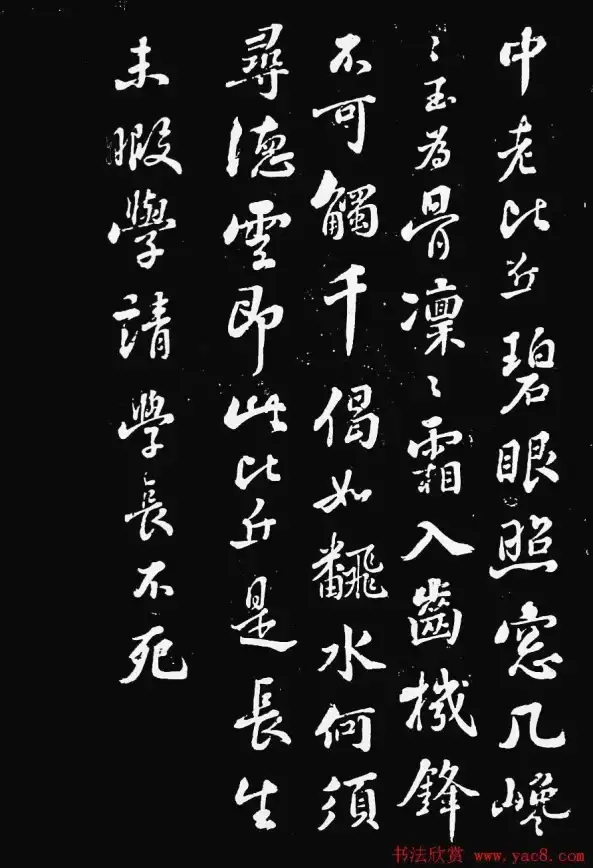 中老比丘碧眼照窓几巉
〻玉為骨凜〻霜入齒機鋒
不可觸千偈如飜水何須
尋德雲即此比丘是長生
未暇學請學長不死
书法欣赏 www.yac8.com